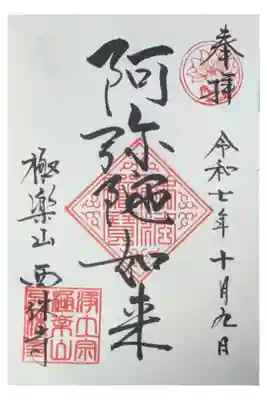 奉拝
令和七年十月九日
阿弥陀如来
極楽山 西林寺
浄土宗
極楽山